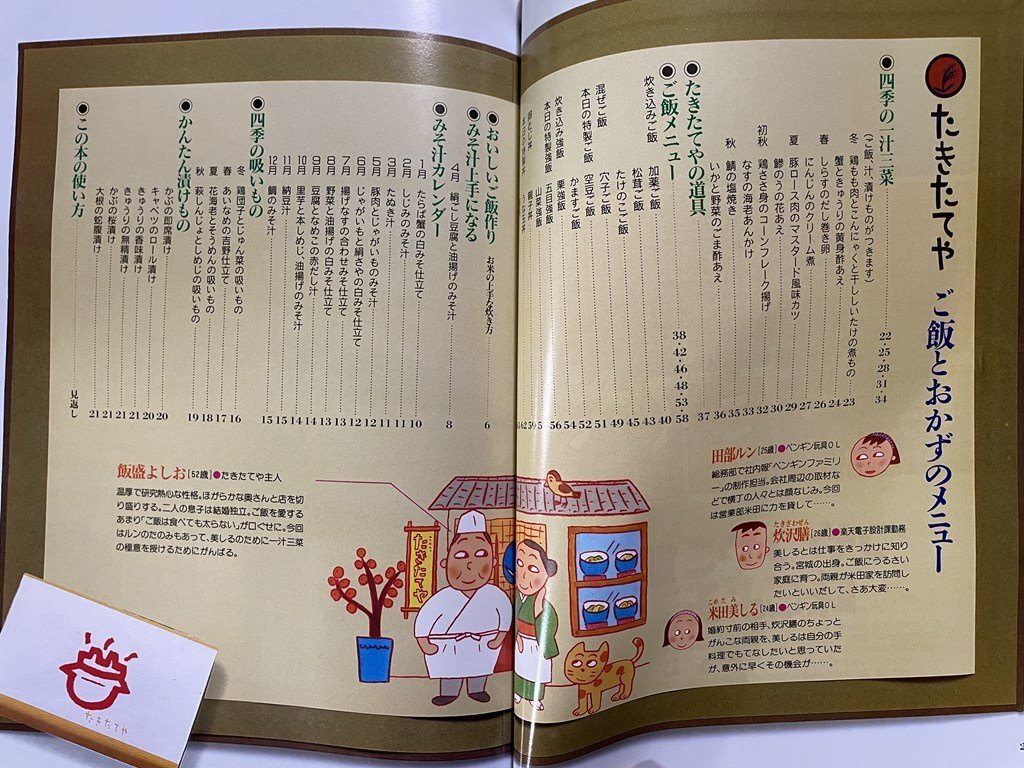 たきたてや ご飯とおかずのメニュー
●四季の一汁三菜
(ご飯、汁、漬けものがつきます)
冬 鶏もも肉とこんにゃくと干ししいたけの煮もの 23
蟹ときゅうりの黄身酢あえ 24
春 しらすのだし巻き卵 26
にんじんのクリーム煮 27
夏 豚ロース肉のマスタード風味カツ 29
鯵のうの花あえ 30
初秋 鶏ささ身のコーンフレーク揚げ 32
なすの海老あんかけ 33
秋 鯖の塩焼き 35
いかと野菜のごま酢あえ 36
37
22・25・28・31・34
●たきたてやの道具
38・42・46・48・53・58
●ご飯メニュー
炊き込みご飯 加薬ご飯 40
松茸ご飯 43
たけのこご飯 45
混ぜご飯 穴子ご飯 49
本日の特製ご飯 空豆ご飯 51
かますご飯 52
炊き込み強飯 栗強飯 54
本日の特製強飯 五目強飯 56
山菜強飯
卵とじ丼 親子丼 59
●おいしいご飯作り お米の上手な炊き方 6
●みそ汁上手になる
4月 絹ごし豆腐と油揚げのみそ汁 8
●みそ汁カレンダー
1月 たらば蟹の白みそ仕立て 10
2月 しじみのみそ汁 10
3月 たぬき汁 11
5月 豚肉とじゃがいものみそ汁 11
6月 じゃがいもと絹さやの白みそ仕立て 12
7月 揚げなすの合わせみそ仕立て 12
8月 野菜と油揚げの白みそ仕立て 13
9月 豆腐となめこの赤だし汁 13
10月 里芋と本しめじ、油揚げのみそ汁 14
11月 納豆汁 14
12月 鯛のみそ汁 15
15
●四季の吸いもの
冬 鶏団子とじゅん菜の吸いもの 16
春 あいなめの吉野仕立て 17
夏 花海老とそうめんの吸いもの 18
秋 萩しんじょとしめじの吸いもの 19
●かんたん漬けもの
かぶの即席漬け 20
キャベツのロール漬け 20
きゅうりの香味漬け 21
きゅうりの無精漬け 21
かぶの桜漬け 21
大根の蛇腹漬け 21
●この本の使い方 見返し
田部ルン[25歳]●ペンギン玩具OL
総務部で社内報「ペンギンファミリ
ー」の制作担当。会社周辺の取材な
どで横丁の人々とは顔なじみ。今回
は営業部米田に力を貸して……。
たきざわぜん
炊沢膳[26歳]●楽天電子設計課勤務
美しるとは仕事をきっかけに知り
合う。宮城の出身。ご飯にうるさい
家庭に育つ。両親が米田家を訪問し
たいといいだして、さあ大変……。
こめだ み
米田美しる[24歳]●ペンギン玩具OL
婚約寸前の相手、炊沢膳のちょっと
がんこな両親を、美しるは自分の手
料理でもてなしたいと思っていた
が、意外に早くその機会が……。
飯盛よしお[52歳]●たきたてや主人
温厚で研究熱心な性格。ほがらかな奥さんと店を切
り盛りする。二人の息子は結婚独立。ご飯を愛する
あまり「ご飯は食べても太らない」が口ぐせに。今回
はルンのたのみもあって、美しるのために一汁三菜
の極意を授けるためにがんばる。
たきたてや
たきたてや